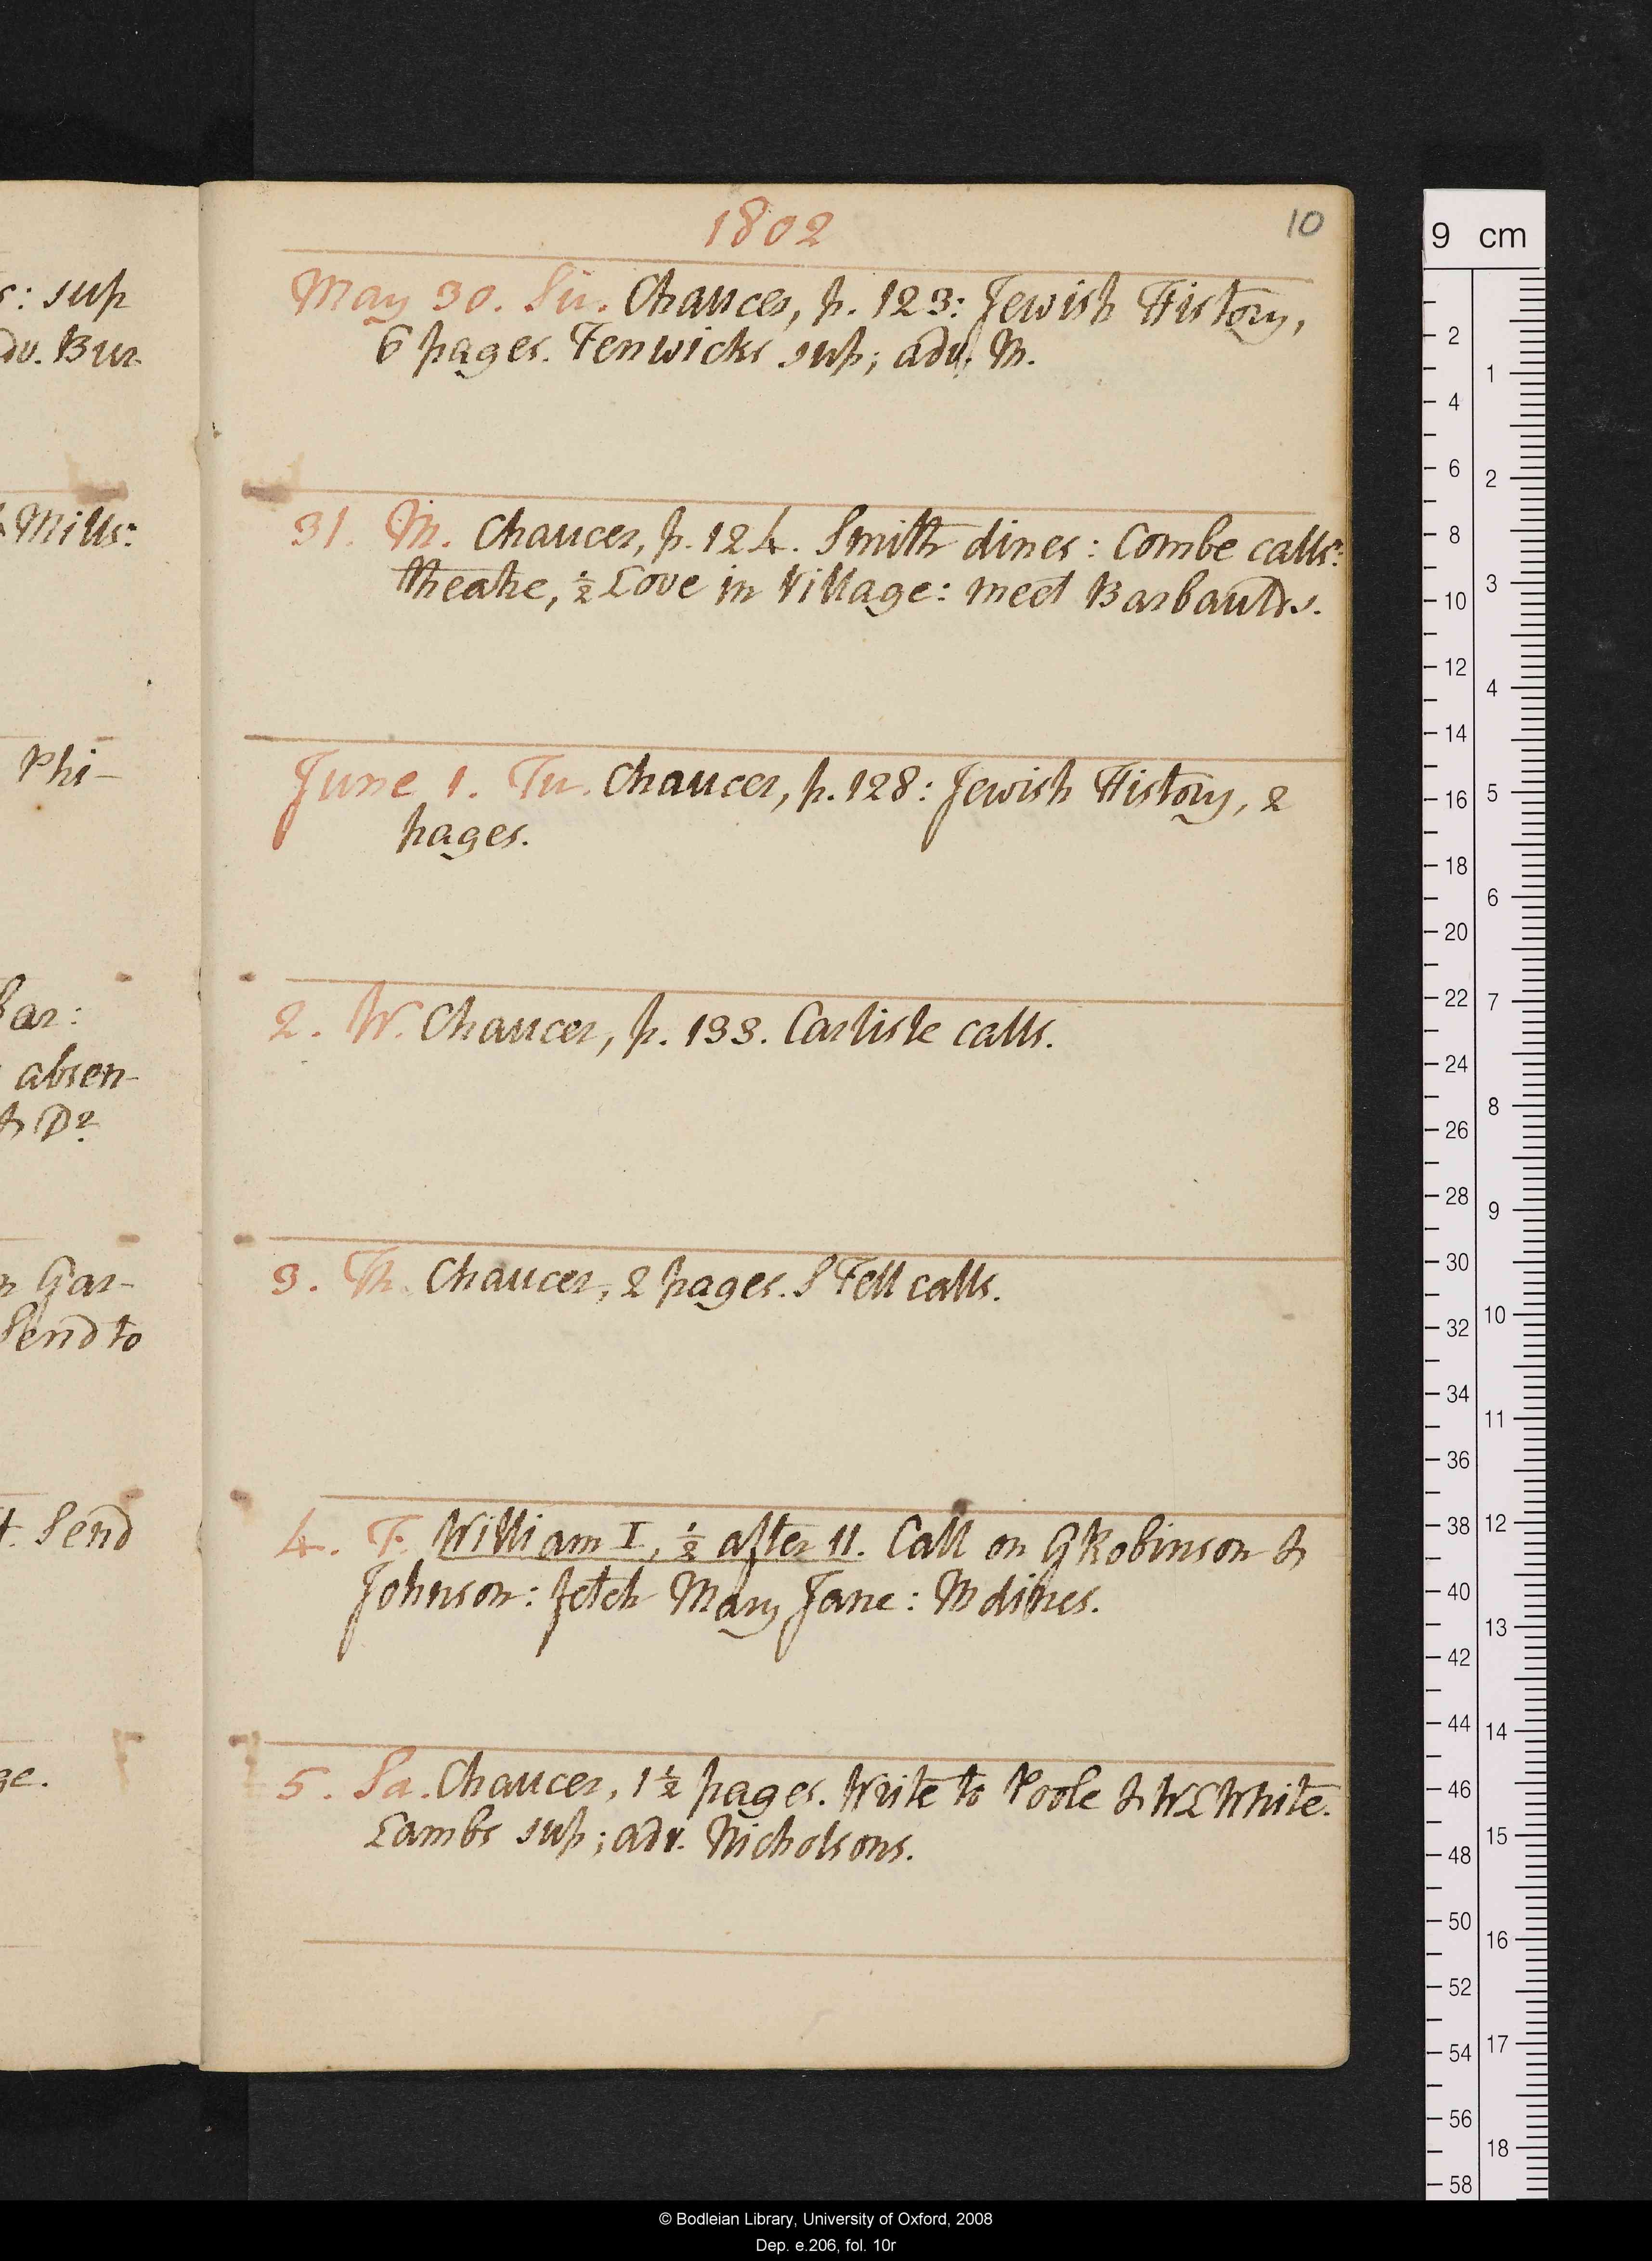 s: sup
adv. Bur
& Mills:
Phi-
Bar:
absen-
& Do
n Gar-
Send to
t. Send
ge.
1802
10
May 30. Su. Chaucer, p. 123: Jewish History,
6 pages. Fenwicks sup; adv. M.
31. M. Chaucer, p. 124. Smith dines: Combe calls:
theatre, ½ Love in Village: meet Barbaulds.
June 1. Tu. Chaucer, p. 128: Jewish History, 2
pages.
2. W. Chaucer, p. 133. Carlisle calls.
3. Th. Chaucer, 2 pages. S Fell calls.
4. F. William I, ½ after 11. Call on G Robinson &
Johnson: fetch Mary Jane: M dines.
5. Sa. Chaucer, 1½ pages. Write to Poole & W L White.
Lambs sup; adv. Nicholsons.
9 cm
2
4
6
8
10
12
14
16
18
20
22
24
26
28
30
32
34
36
38
40
42
44
46
48
50
52
54
56
58
1
2
3
4
5
6
7
8
9
10
11
12
13
14
15
16
17
18
© Bodleian Library, University of Oxford, 2008
Dep. e.206, fol. 10r